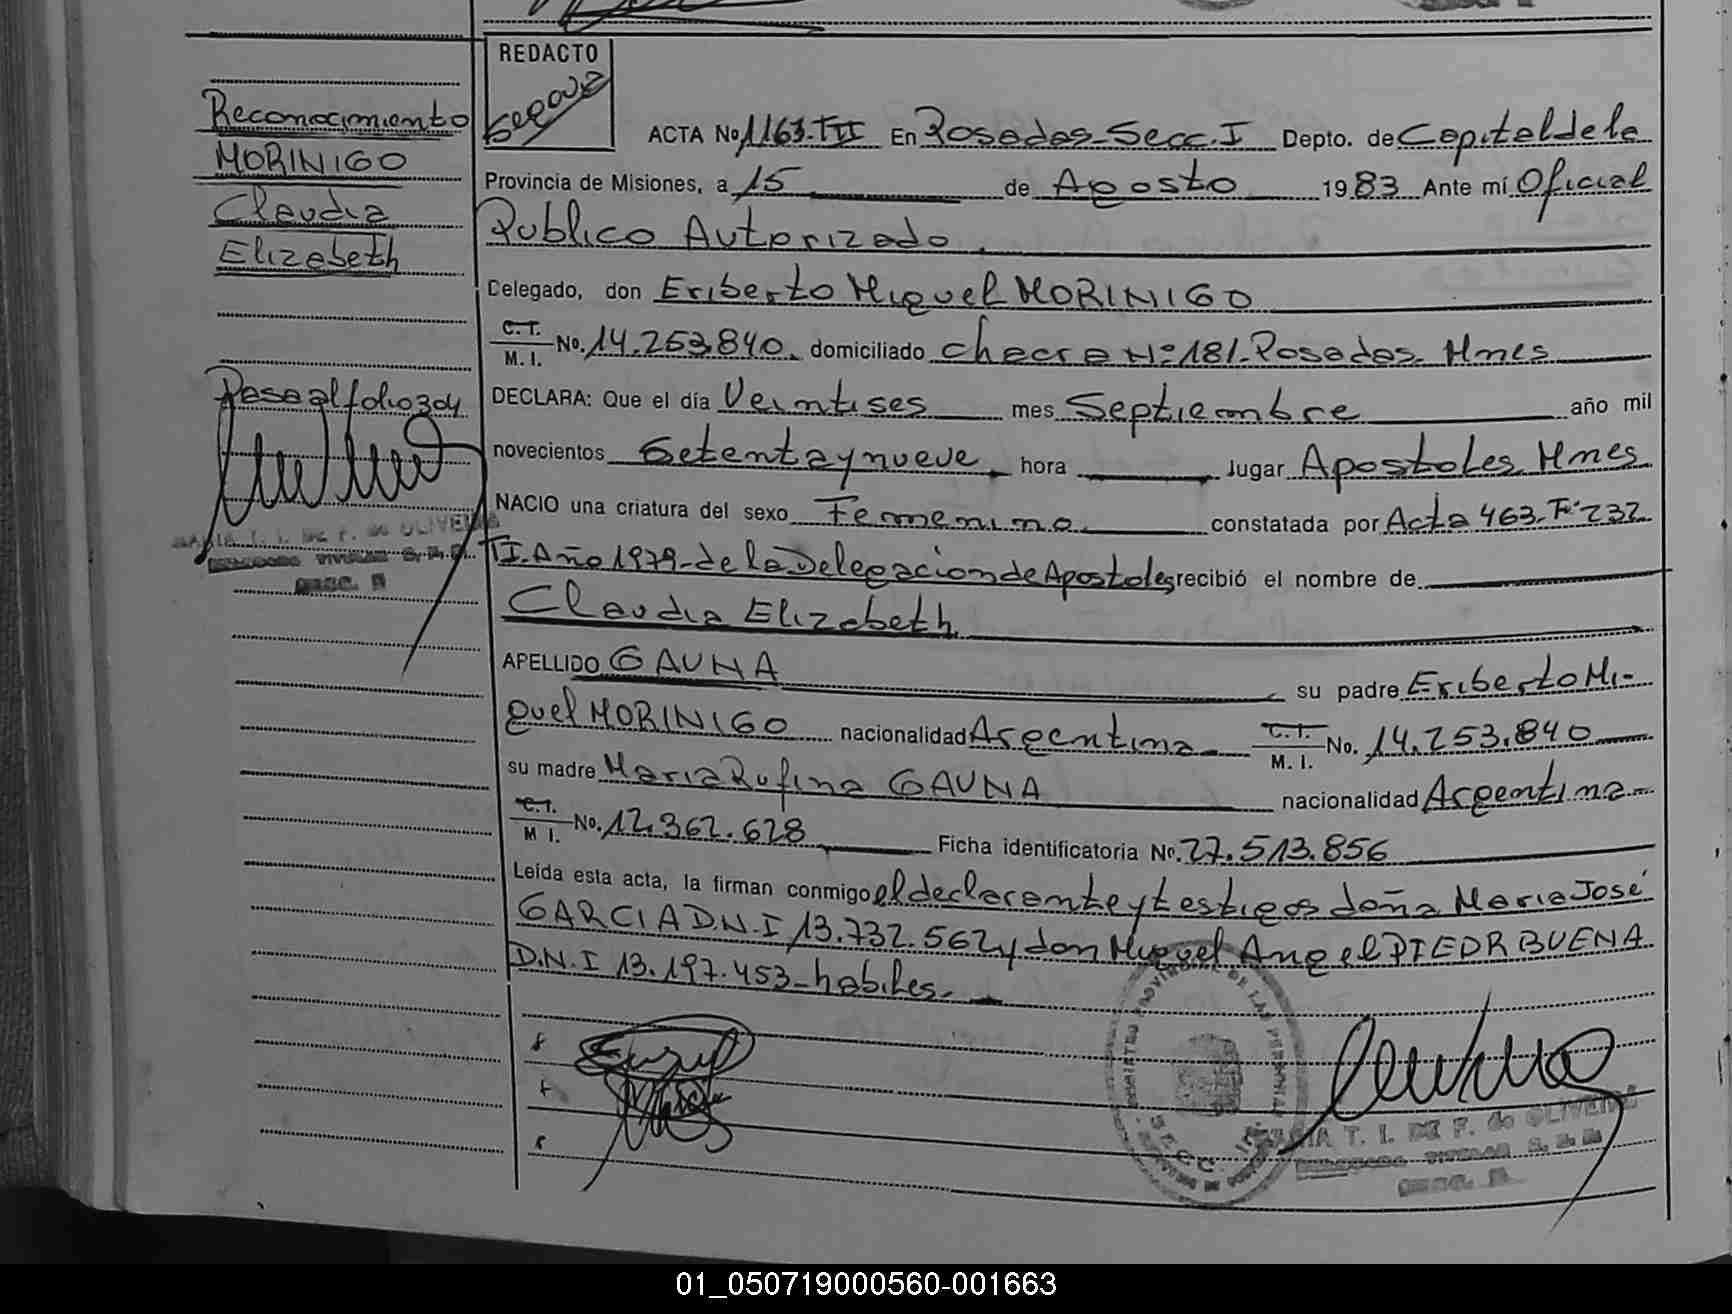 REDACTO
Reconocimiento
MORINIGO
Claudia
Elizabeth
Pase al folio 304
ACTA No 1163. TII En Posadas-Secc. I Depto. de Capital de la
Provincia de Misiones, a 15 de Agosto 1983 Ante mí Oficial
Publico Autorizado.
Delegado, don Eriberto Miguel MORINIGO
C.I.
M. I. No. 14.253.840. domiciliado chacra Nº 181. Posadas. Mnes
DECLARA: Que el día Veintises mes Septiembre año mil
novecientos Setenta y nueve hora lugar Apostoles. Mnes
NACIO una criatura del sexo Femenino constatada por Acta 463. Fº 232
TI. Año 1979. de la Delegacion de Apostoles recibió el nombre de
Claudia Elizabeth.
APELLIDO GAUNA su padre Eriberto Mi-
guel MORINIGO nacionalidad Argentina C.I.
M. I. No. 14.253.840
su madre Maria Rufina GAUNA nacionalidad Argentina
C.I.
M I. No. 12.362.628 Ficha identificatoria No. 27.513.856
Leída esta acta, la firman conmigo el declarante y testigos doña Maria José
GARCIA D.N.I 13.732.562 y don Miguel Angel PIEDRBUENA
D.N.I 13.197.453_habiles.
MARIA T. I. DE F. de OLIVEIRA
MARIA T. I. DE F. de OLIVEIRA
01_050719000560-001663